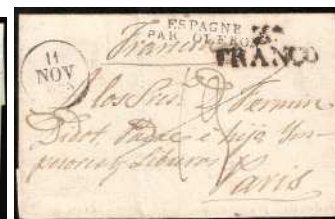 ESPAGNE
PAR OLERON
Francia
FRANCO
11
NOV
A los Sres. Dn. Fermin
Didot, Padre é hijo Im-
presores y Libreros
Paris